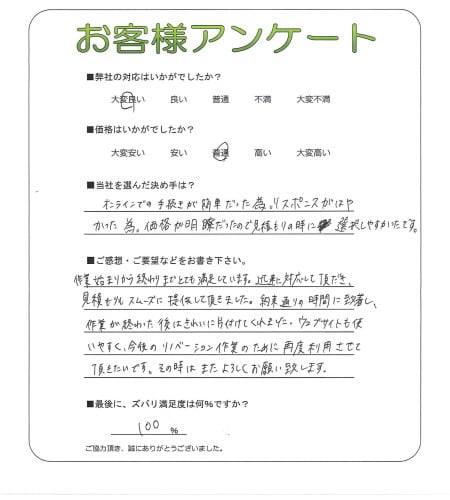 お客様アンケート
■弊社の対応はいかがでしたか?
大変良い 良い 普通 不満 大変不満
■価格はいかがでしたか?
大変安い 安い 普通 高い 大変高い
■当社を選んだ決め手は?
オンラインでの手続きが簡単だった為。リスポンスがはや
かった為。価格が明瞭だったので見積もりの時に選択しやすかったです。
■ご感想・ご要望などをお書き下さい。
作業始まりから終わりまでとても満足しています。迅速に対応して頂だき、
見積もりもスムーズに提供して頂きました。約束通りの時間に到着し、
作業が終わった後はきれいに片付けてくれました。ウェブサイトも使
いやすく、今後のリノベーション作業のために再度利用させて
頂きたいです。その時はまたよろしくお願い致します。
■最後に、ズバリ満足度は何%ですか?
100 %
ご協力頂き、誠にありがとうございました。